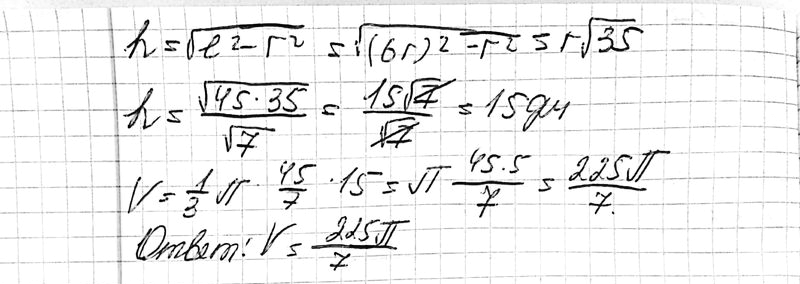 h = √(l² - r²) = √((6r)² - r²) = r√35
h = √(45·35)/√7 = 15√7/√7 = 15 дм
V = 1/3 π · 45/7 · 15 = π 45·5/7 = 225π/7.
Ответ: V = 225π/7